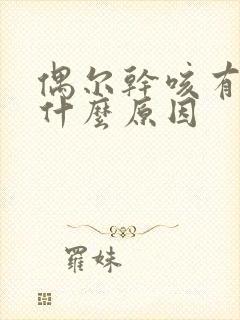 偶尔幹咳有
什麼原因
羅妹